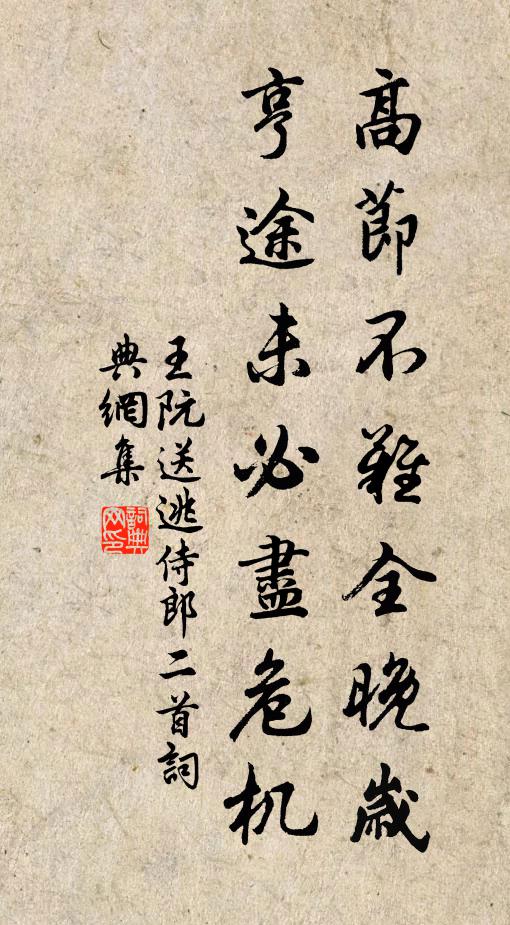 高節不難全晚歲
亨途未必盡危机
王阮送逃侍郎二首詞
典網集
詞典网印